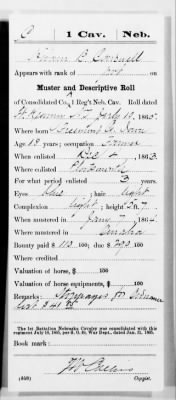 C | 1 Cav. | Neb.
Hiram B.
Appears with rank of
Muster and Descriptive Roll
of Consolidated Co. 1 Reg't Neb. Cav. Roll dated
Ft. Kearney N. T. July 10, 1865.
Where born Fremont Co. Iowa
Age 18 years; occupation Farmer
When enlisted 1863
Where enlisted Plattsmouth
For what period enlisted 3 years.
Eyes blue; hair light
Complexion light; height 5 ft. 7 in.
When mustered in Jany 7, 1864
Where mustered in Omaha
Bounty paid $ 110 100; due $ 290 100
Where credited
Valuation of horse, $ 100
Valuation of horse equipments, $ 100
Remarks: Stoppages for Ordnance
The 1st Battalion Nebraska Cavalry was consolidated with this
regiment July 10, 1865, per S. O. 41, War Dept., dated Jan. 31, 1865.
Book mark:
Collins
(849) Copyist.